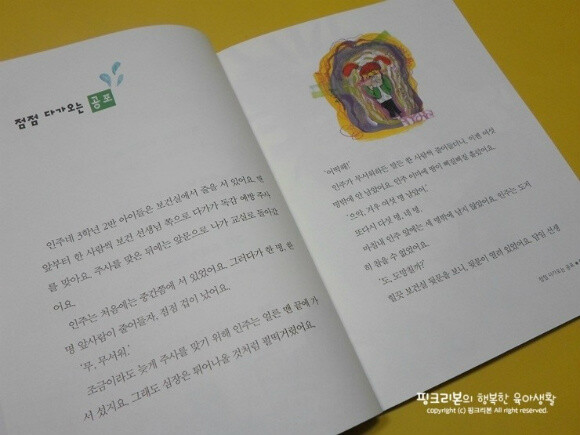 점점 다가오는 공포
인주네 3학년 2반 아이들은 보건실에서 줄을 서 있어요. 맨
앞부터 한 사람씩 보건 선생님 쪽으로 다가가 독감 예방 주사
를 맞아요. 주사를 맞은 뒤에는 앞문으로 나가 교실로 돌아갔
어요.
인주는 처음에는 중간쯤에 서 있었어요. 그러다가 한 명, 한
명 앞사람이 줄어들자, 점점 겁이 났어요.
'무, 무서워.'
조금이라도 늦게 주사를 맞기 위해 인주는 얼른 맨 끝에 가
서 섰지요. 그래도 심장은 튀어나올 것처럼 펄떡거렸어요.
'어떡해!'
인주가 무서워하는 말든 한 사람씩 줄어들더니, 이젠 여섯
명밖에 안 남았어요. 인주 이마에 땀이 삐질삐질 흘렀어요.
'으악, 겨우 여섯 명 남았어.'
또다시 다섯 명, 네 명.
마침내 인주 앞에는 세 명밖에 남지 않았어요. 인주는 도저
히 참을 수 없었어요.
'도, 도망칠까?'
힐끗 보건실 뒷문을 보니, 뒷문이 열려 있었어요. 담임 선생
점점 다가오는 공포
핑크리본의 행복한 육아생활
copyright (c) 핑크리본 All rights reserved.